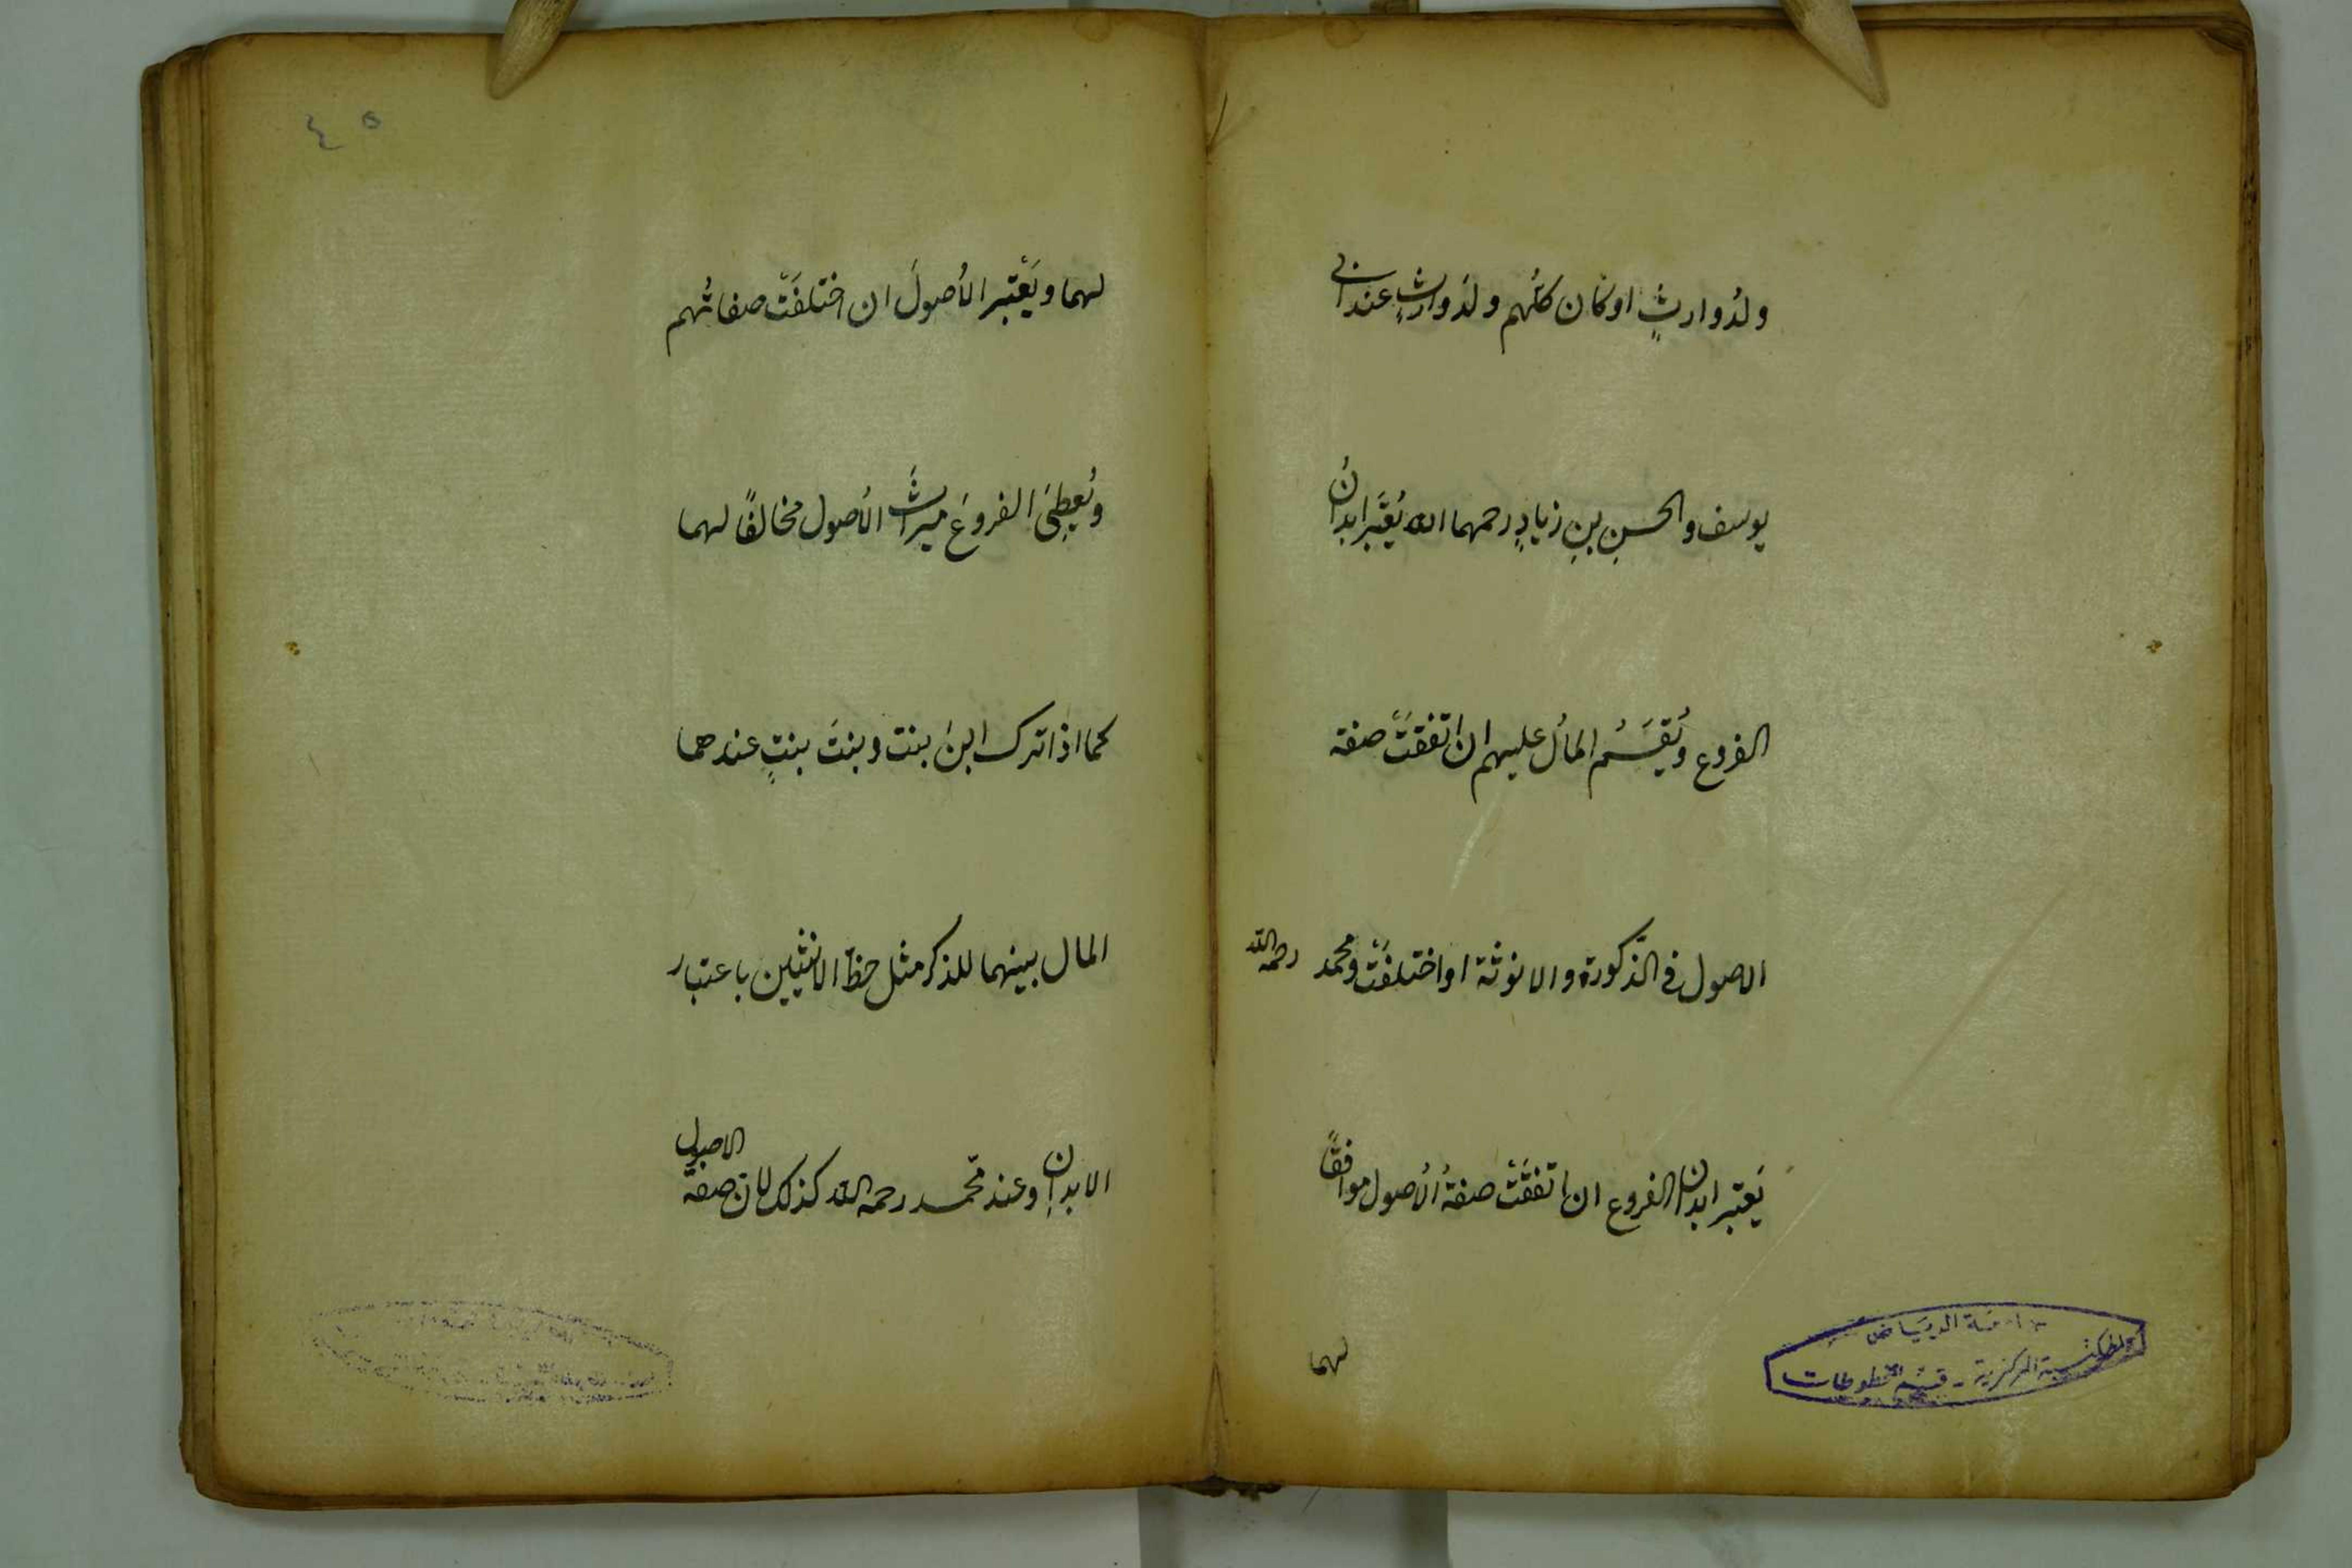 ولدُ وارثٍ او كان كلُّهم ولدَ وارثٍ عند ابى
يوسف والحسنِ بنِ زيادٍ رحمهما الله يُعْتَبَر ابدانُ
الفروع ويُقسَمُ المالُ عليهم ان اتفقَتْ صفة
الاصول فى الذّكورة والانوثة او اختلفَتْ ومحمد رحمه الله
يَعتبر ابدانَ الفروع ان اتفقَتْ صفةُ الأصول موافقًا
لهما
جامعة الرياض
المكتبة المركزية - قسم المخطوطات
٤٥
لهما ويَعْتبر الأصولَ ان اختلفَتْ صفاتُهم
ويُعطِى الفروعَ ميراثَ الأصول مخالفًا لهما
كما اذا ترك ابنَ بنت وبنتَ بنتٍ عندهما
المال بينهما للذكر مثل حظّ الانثيين باعتبار
الابدانِ وعند محمّد رحمه الله كذلك لانّ صفة الاصول